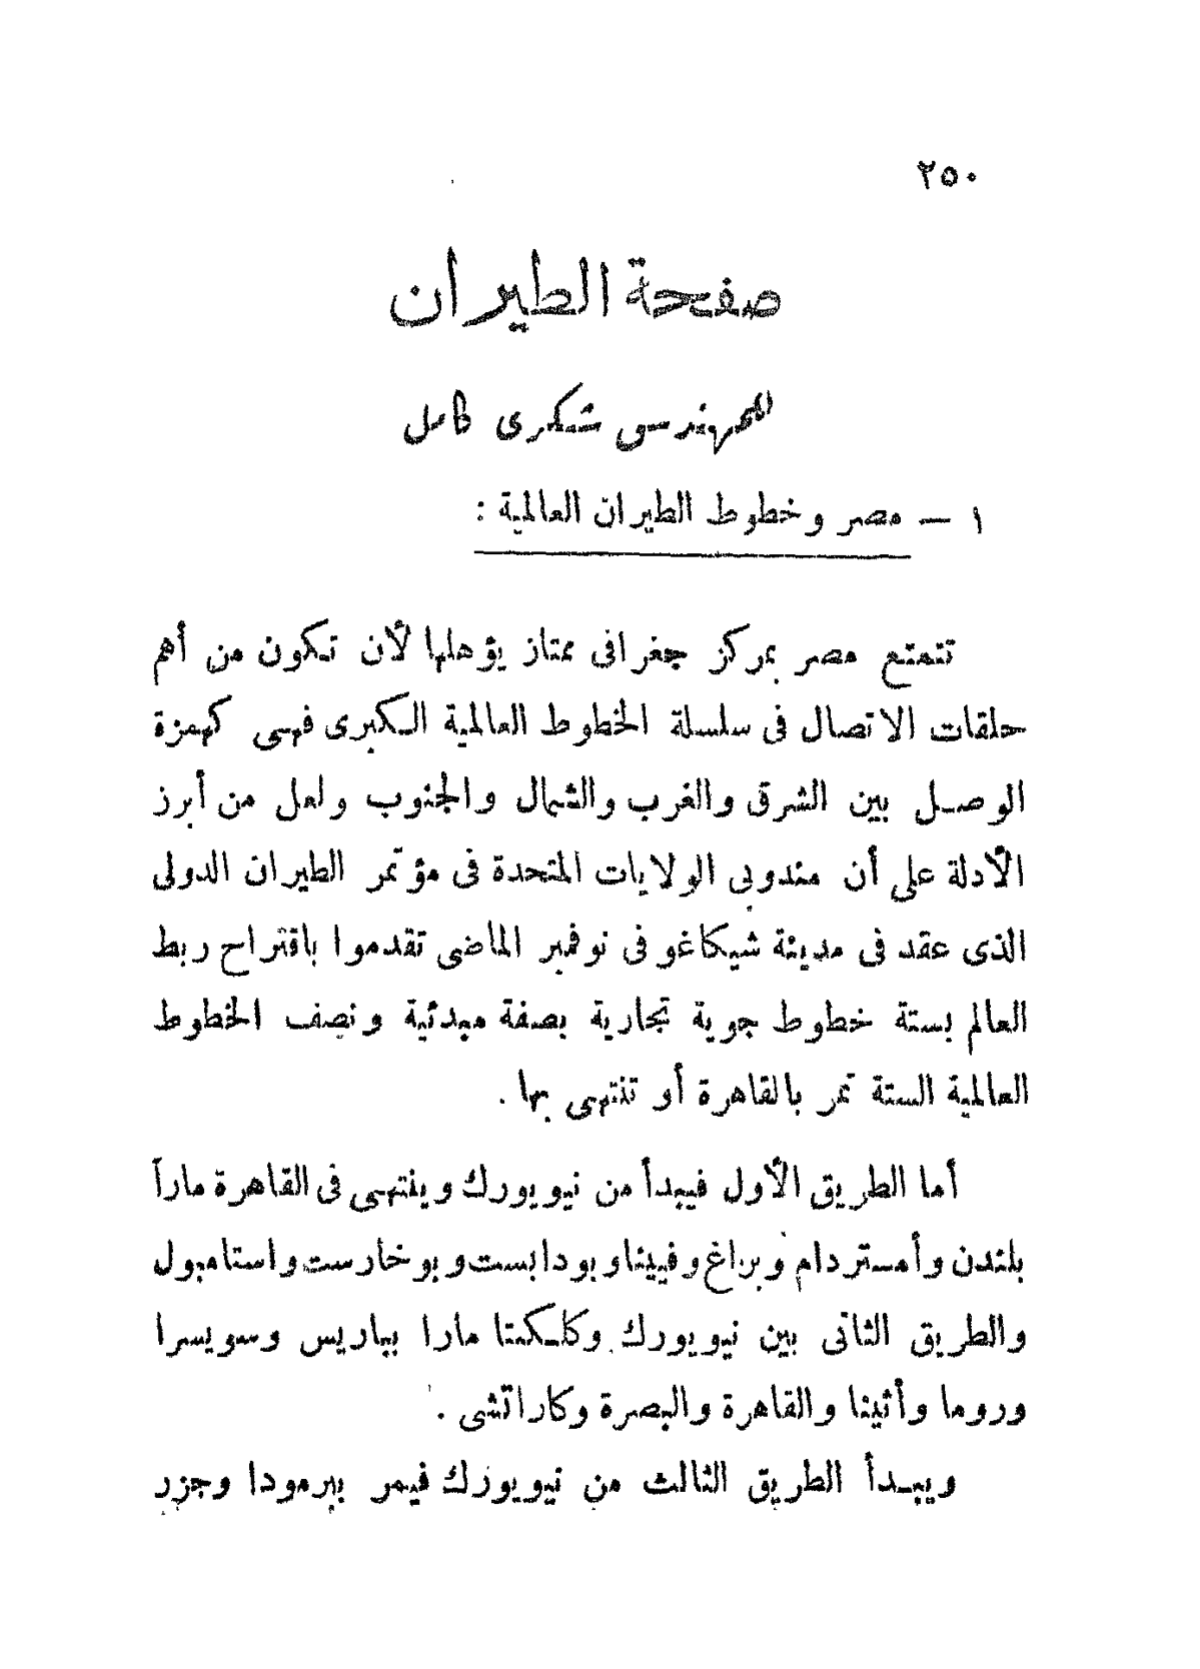 ٢٥٠
صفحة الطيران
للمهندس شكرى كامل
١ — مصر وخطوط الطيران العالمية :
تتمتع مصر بمركز جغرافى ممتاز يؤهلها لأن تكون من أهم
حلقات الاتصال فى سلسلة الخطوط العالمية الكبرى فهى كهمزة
الوصل بين الشرق والغرب والشمال والجنوب ولعل من أبرز
الأدلة على أن مندوبى الولايات المتحدة فى مؤتمر الطيران الدولى
الذى عقد فى مدينة شيكاغو فى نوفمبر الماضى تقدموا باقتراح ربط
العالم بستة خطوط جوية تجارية بصفة مبدئية ونصف الخطوط
العالمية الستة تمر بالقاهرة أو تنتهى بها .
أما الطريق الأول فيبدأ من نيويورك وينتهى فى القاهرة ماراً
بلندن وأمستردام وبراغ وفيينا وبودابست وبوخارست واستامبول
والطريق الثانى بين نيويورك وكلكتا مارا بباريس وسويسرا
وروما وأثينا والقاهرة والبصرة وكاراتشى .
ويبدأ الطريق الثالث من نيويورك فيمر ببرمودا وجزر